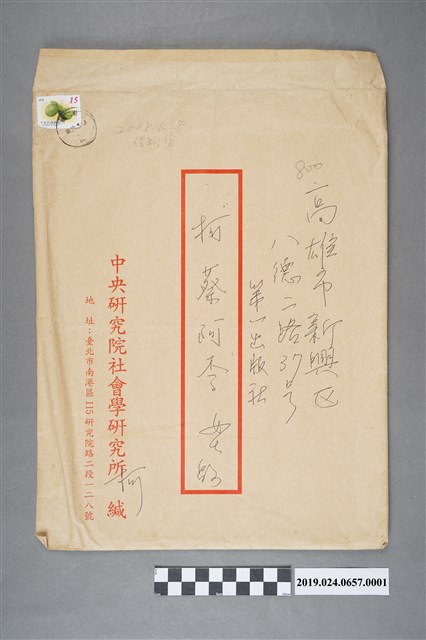 800
高雄市新興区
八德二路37号
第一出版社
柯蔡阿李女啟
中央研究院社會學研究所 柯 緘
地 址：臺北市南港區115研究院路二段一二八號
15
2019.024.0657.0001